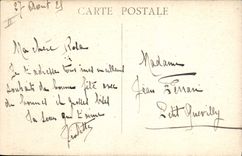 27 Aout 21
CARTE POSTALE
Ma chère Rosa
Je t'adresse tous mes meilleurs
souhaits de bonne fête avec
de bonnes et
Ta sœur qui t'aime
Madame
Jean Ferrari
Petit Quevilly